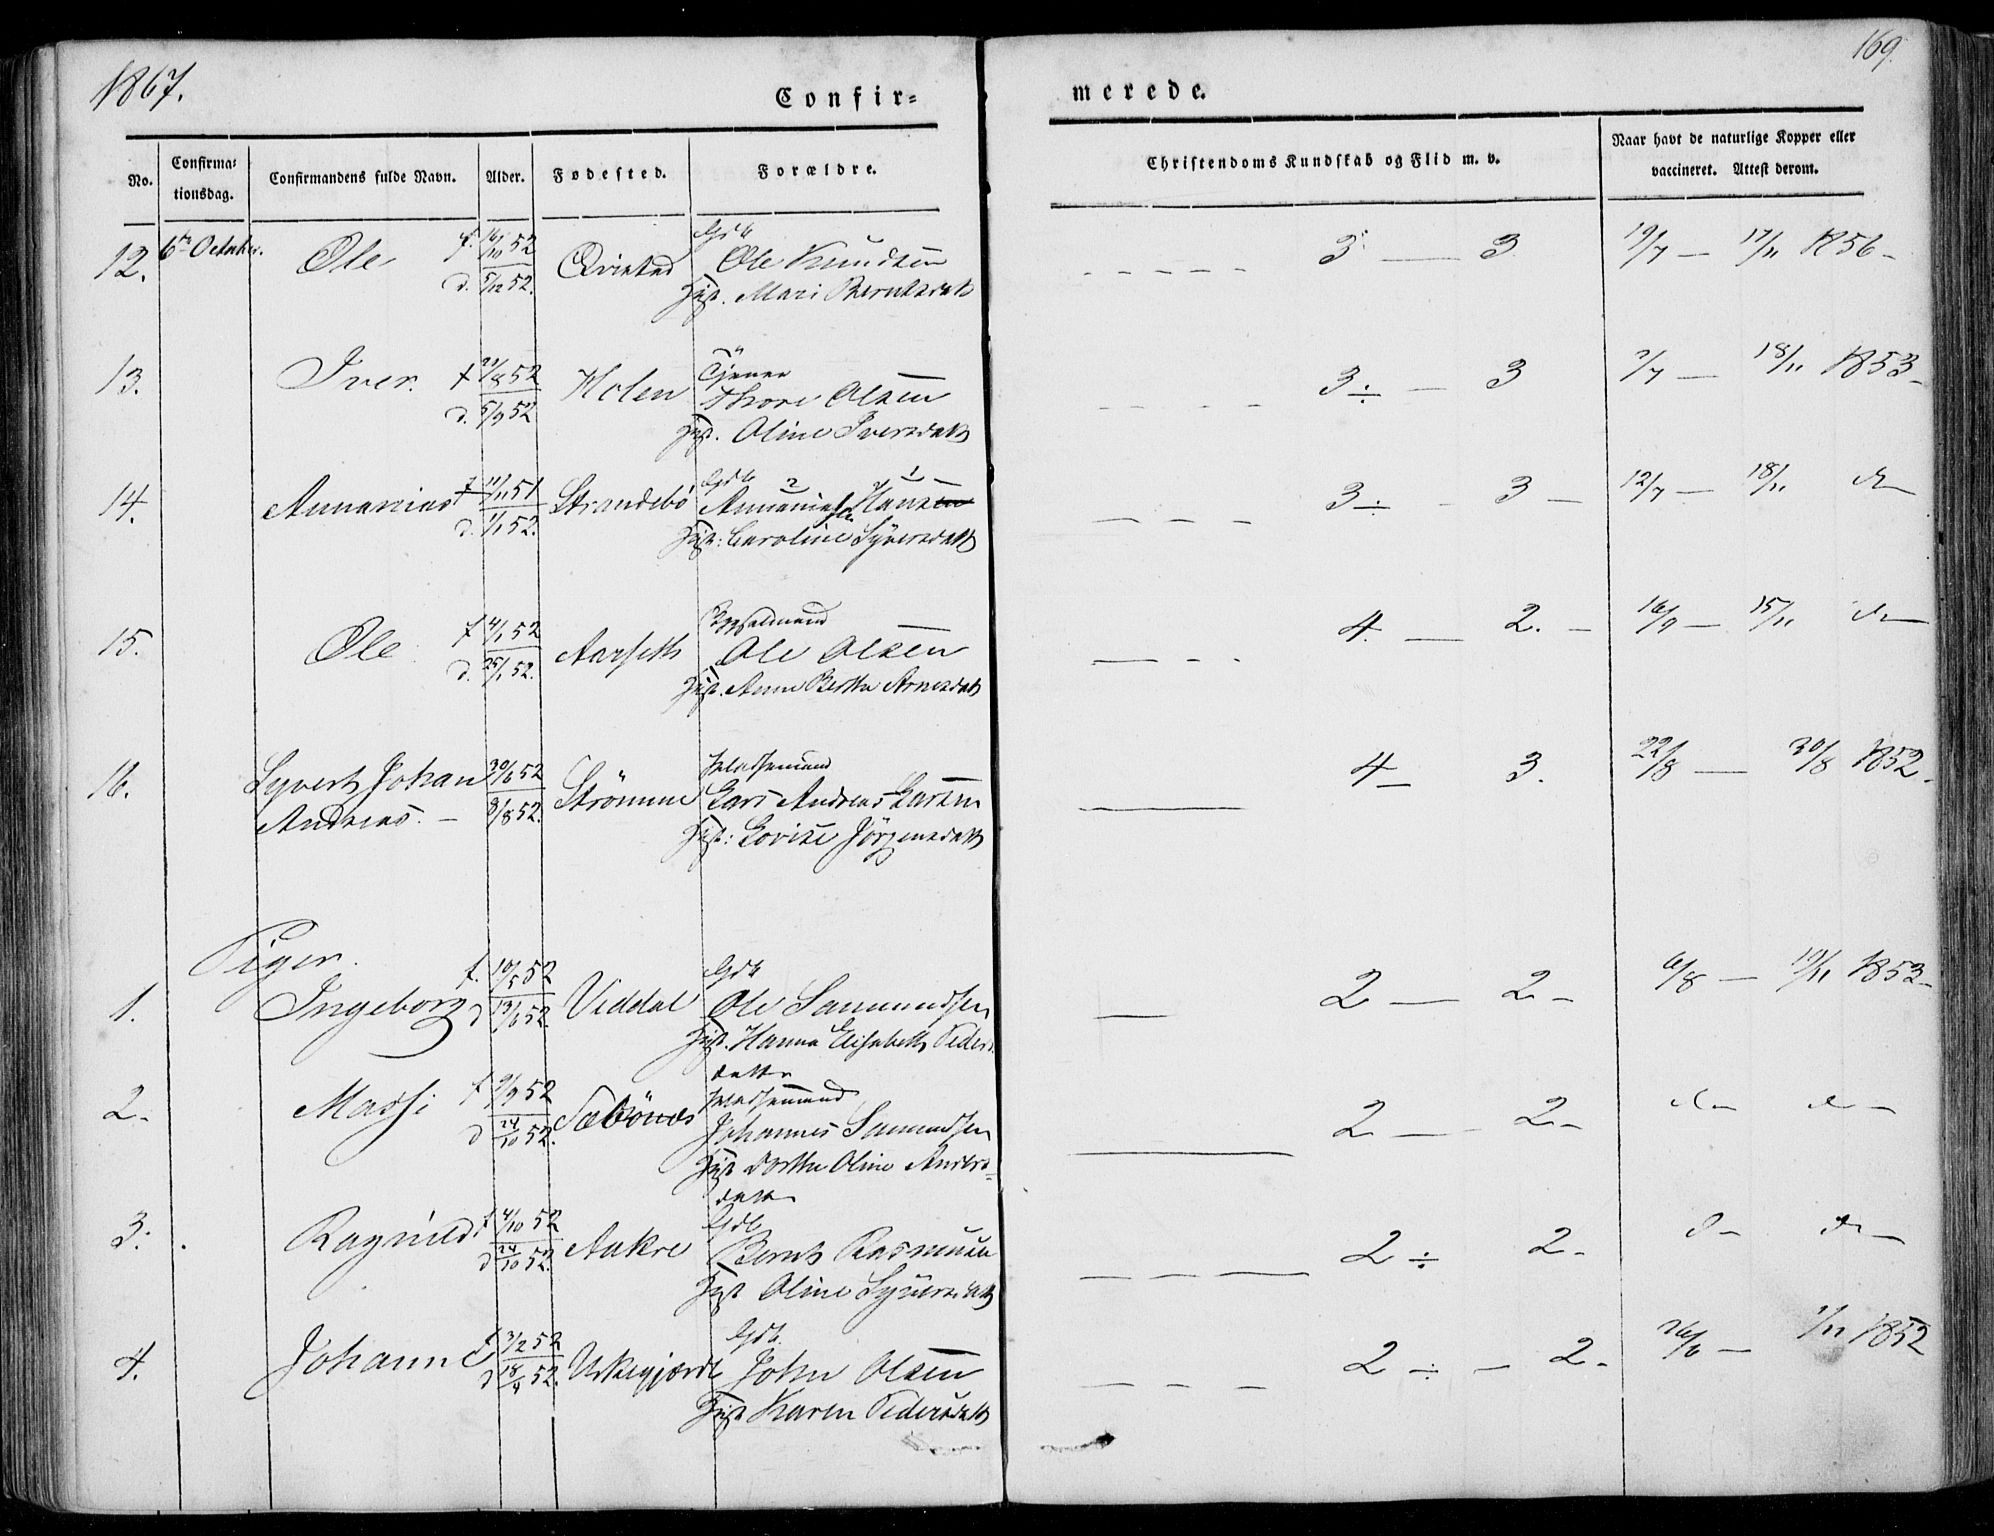 1867.
169.
Confir=
merede.
No.
Confirma=
tionsdag.
Confirmandens fulde Navn.
Alder.
Fødested.
Forældre.
Christendoms Kundskab og Flid m. v.
Naar havt de naturlige Kopper eller
vaccineret. Attest derom.
12. 6te October. Ole f. 16/10 52 Qvistad Gdb 3 — 3 19/7 — 17/11 1856 -
d. 5/12 52. Ole Knudsen
Hst. Mari Berntsdatt
13. Iver. f 21/8 52 Holen Tjener 3 ÷ — 3 2/7 — 18/11 1853 -
d. 5/9 52 Thore Olsen
Hst. Oline Iversdatt
14. Annanias f 11/11 51 Strandebö Gdb 3 ÷ - 3 — 12/7 — 18/11 do
d. 1/1 52. Annanias Hansen
Hst: Caroline Syversdatt
15. Ole f 4/1 52 Aarseth Bygselmand 4 — 2. - 16/9 — 15/11 do
d. 25/1 52. Ole Olsen
Hst. Anne Berthe Arnesdatt
16. Syvert Johan 30/6 52 Strömme Pladsemand 4 — 3. 22/8 — 30/8 1852.
Andreas. — 8/8 52. Lars Andreas Larsen
Hst: Lovise Jörgensdatt
Piger.
1. Ingeborg f. 10/5 52 Viddal Gdb 2 — 2 - 6/8 — 19/11 1853 -
d 13/6 52. Ole Samundsen
Hst. Hanna Elisabeth Peders
datter
2. Massi f 9/9 52 Sæbönæs Pladsemand 2 — 2 - do do
d 24/10 52. Johannes Samundsen
Hst Dorthe Oline Anders-
datter
3. Ragnild f 4/10 52 Aakre Gdb 2 ÷ 2 - do do
d 24/10 52. Bernt Rasmusen
Hst Oline Syversdatt
4. Johanne f 3/2 52 Urkegjærde Gdb. 2 ÷ - 2 - 26/6 — 1/11 1852
d 18/4 52. John Olsen
Hst Karen Pedersdatt